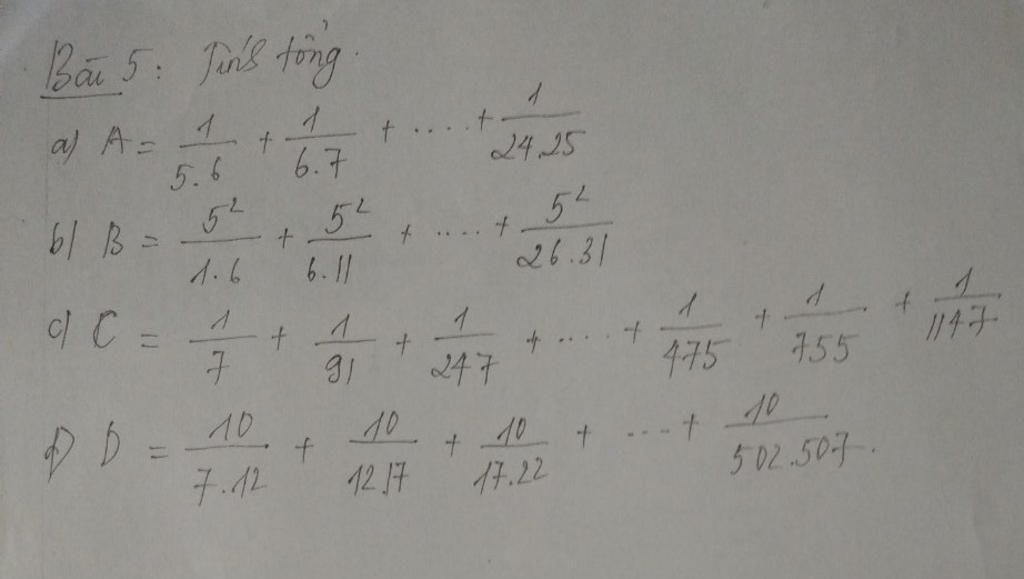 Bài 5: Tính tổng.
a) A = 1/5.6 + 1/6.7 + .... + 1/24.25
b) B = 5²/1.6 + 5²/6.11 + .... + 5²/26.31
c) C = 1/7 + 1/91 + 1/247 + .... + 1/475 + 1/755 + 1/1147
d) D = 10/7.12 + 10/12.17 + 10/17.22 + ....+ 10/502.507.